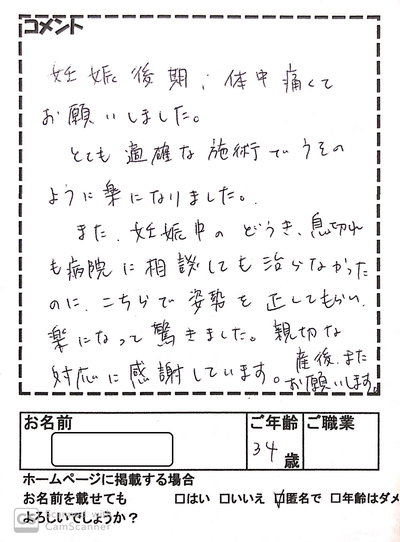 コメント
妊娠後期、体中痛くて
お願いしました。
とても適確な施術でうその
ように楽になりました。
また、妊娠中のどうき、息切れ
も病院に相談しても治らなかった
のに、こちらで姿勢を正してもらい、
楽になって驚きました。親切な
対応に感謝しています。産後、また
お願いします。
お名前 ご年齢 ご職業
34歳
ホームページに掲載する場合
お名前を載せても □はい □いいえ ☑匿名で □年齢はダメ
よろしいでしょうか？
CS Scanned with
CamScanner